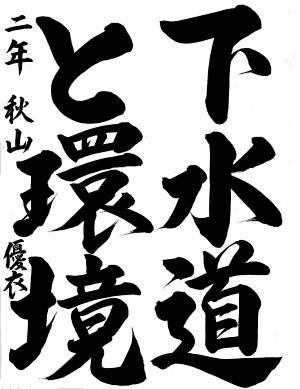 下水道
と環境
二年 秋山 優衣